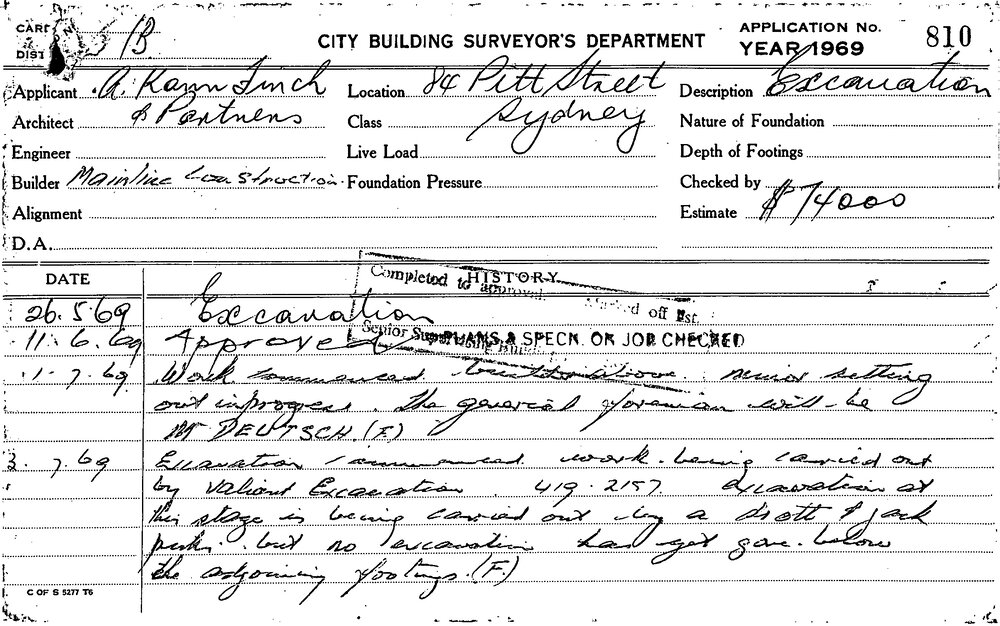 CARD N
DIST
1B
CITY BUILDING SURVEYOR'S DEPARTMENT
APPLICATION No.
YEAR 1969
810
Applicant A. Kann Finch
Location 84 Pitt Street
Description Excavation
Architect & Partners
Class Sydney
Nature of Foundation
Engineer
Live Load
Depth of Footings
Builder Mainline Construction
Foundation Pressure
Checked by
Alignment
Estimate $74000
D.A.
DATE
HISTORY
Completed to approval.
Marked off Est.
26.5.69 Excavation
Senior Supervising Building
PLANS & SPECN. OK JOB CHECKED
11.6.69 Approved
1.7.69 Work commenced minor setting
out in progress. The general foreman will be
Mr DEUTSCH. (F)
3.7.69 Excavation commenced work being carried out
by Valiant Excavation 419.2157 excavation at
this stage is being carried out by a drott & jack
picks but no excavation has yet gone below
the adjoining footings. (F)
C OF S 5277 T6